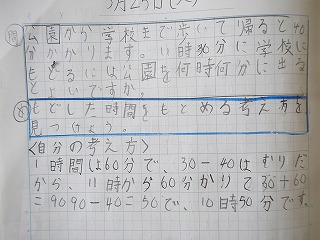 3月25日(火)
問 公園から学校まで歩いて帰ると40
分かかります。11時30分に学校に
もどるには公園を何時何分に出る
とよいですか。
め もどした時間をもとめる考え方を
見つけよう。
<自分の考え方>
1時間は60分で、30-40はむりだ
から、11時から60分かりて30+60
=90 90-40=50で、10時50分です。